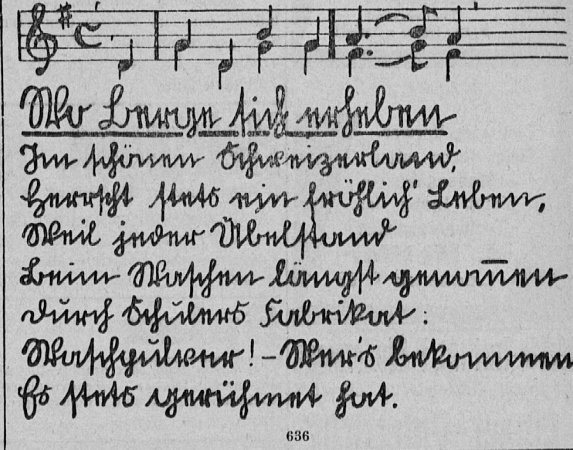 Wo Berge sich erheben
Im schönen Schweizerland,
Herrscht stets ein fröhlich' Leben,
Weil jeder Übelstand
Beim Waschen längst genom̅en
Durch Schulers Fabrikat:
Waschpulver! – Wer's bekommen
Es stets gerühmet hat.
636